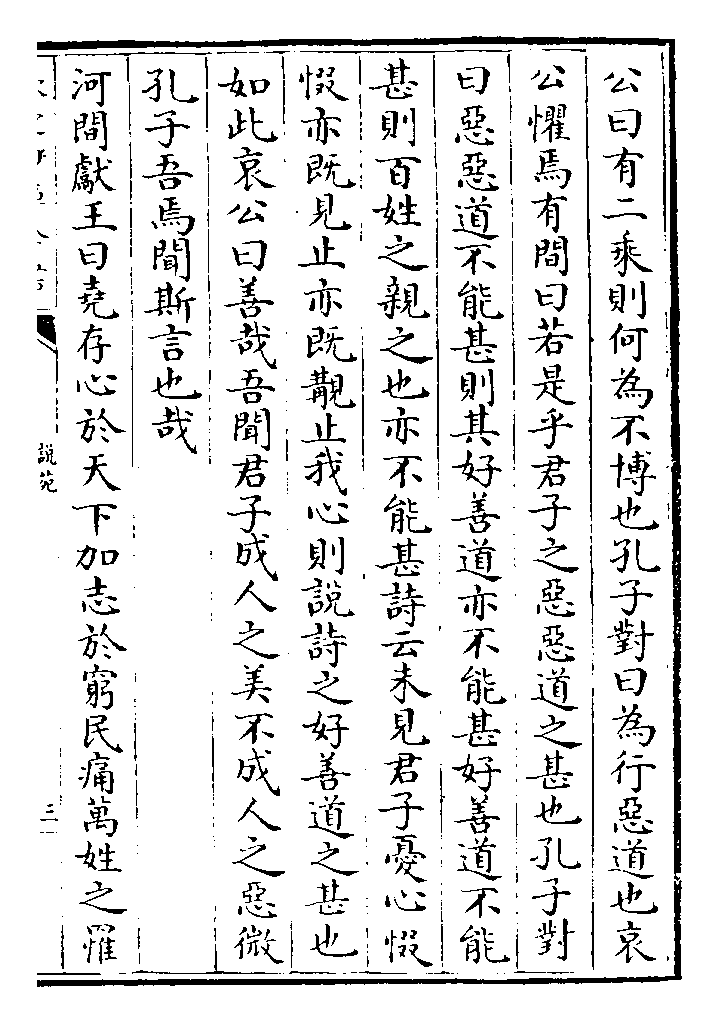 公曰有二乘則何為不博也孔子對曰為行惡道也哀
公懼焉有間曰若是乎君子之惡惡道之甚也孔子對
曰惡惡道不能甚則其好善道亦不能甚好善道不能
甚則百姓之親之也亦不能甚詩云未見君子憂心惙
惙亦既見止亦既覯止我心則說詩之好善道之甚也
如此哀公曰善哉吾聞君子成人之美不成人之惡微
孔子吾焉聞斯言也哉
河間獻王曰堯存心於天下加志於窮民痛萬姓之罹
說苑
三